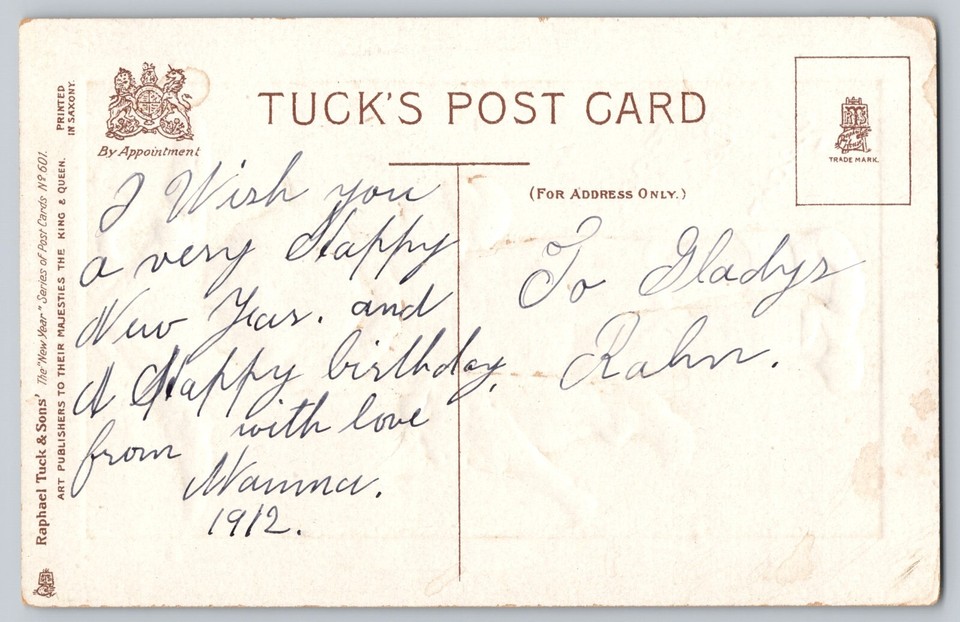 TUCK'S POST CARD
By Appointment
(FOR ADDRESS ONLY.)
TRADE MARK.
PRINTED
IN SAXONY.
Raphael Tuck & Sons' The "New Year" Series of Post Cards Nº 601.
ART PUBLISHERS TO THEIR MAJESTIES THE KING & QUEEN.
I Wish you
a very Happy
New Year. and
A Happy birthday.
with love
from
Mamma.
1912.
To Gladys
Rahn.